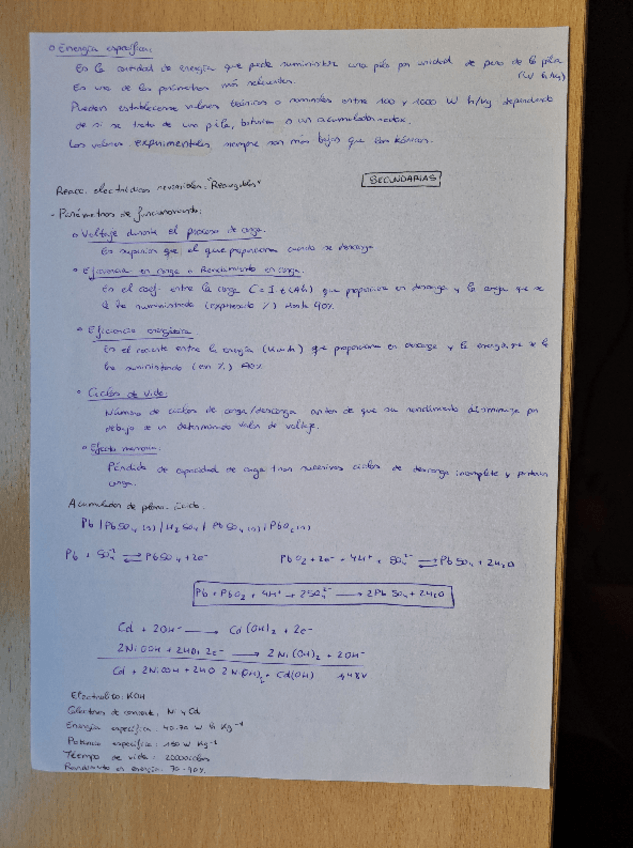 o Energía específica:
Es la cantidad de energía que puede suministrar una pila por unidad de peso de la pila
(W h/kg)
Es uno de los parámetros más relevantes.
Pueden establecerse valores teóricos o nominales entre 100 y 1000 W h/kg dependiendo
de si se trata de una pila, batería o un acumulador redox.
Los valores experimentales siempre son más bajos que los teóricos.
SECUNDARIAS
Reacc. eléctricas reversibles: "Recargables"
- Parámetros de funcionamiento:
o Voltaje durante el proceso de carga.
Es superior que el que proporciona cuando se descarga
o Eficiencia en carga o Rendimiento en carga.
Es el coef. entre la carga C = I.t (Ah) que proporciona en descarga y la carga que se
le ha suministrado (expresado %) Hasta 90%
o Eficiencia energética
Es el cociente entre la energía que proporciona en descarga y la energía que se le
ha suministrado (en %)
o Ciclos de vida
Número de ciclos de carga/descarga antes de que su rendimiento disminuya por
debajo de un determinado valor de voltaje.
o Efecto memoria.
Pérdida de capacidad de carga tras sucesivos ciclos de descarga incompleta y
carga.
Acumulador de plomo ácido
Pb | PbSO4 (s) | H2SO4 | PbSO4 (s) | PbO2 (s)
Pb + SO4²⁻ ⇌ PbSO4 + 2e⁻
PbO2 + 2e⁻ + 4H⁺ + SO4²⁻ ⇌ PbSO4 + 2H2O
Pb + PbO2 + 4H⁺ + 2SO4²⁻ → 2PbSO4 + 2H2O
Cd + 2OH⁻ → Cd(OH)2 + 2e⁻
2NiOOH + 2H2O 2e⁻ → 2Ni(OH)2 + 2OH⁻
Cd + 2NiOOH + 2H2O 2Ni(OH)2 + Cd(OH)
Electrolito: KOH
Colectores de corriente: Ni y Cd
Energía específica: 40-70 W h Kg⁻¹
Potencia específica: 150 W Kg⁻¹
Tiempo de vida: 2000 ciclos
Rendimiento en energía: 70-90%